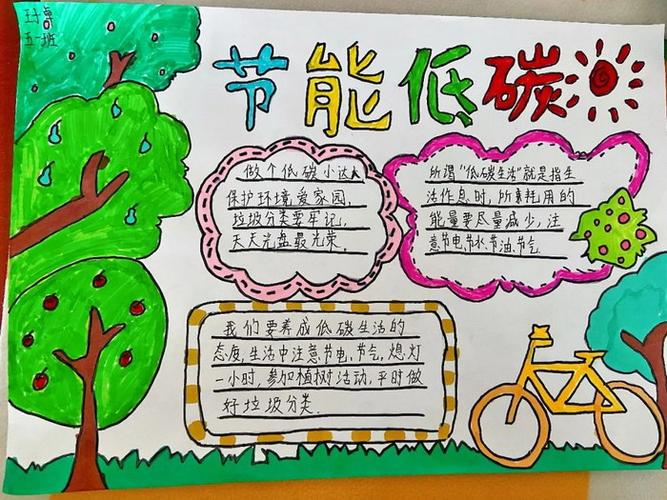 五一班
节能低碳
做个低碳小达人
保护环境爱家园，
垃圾分类要牢记，
天天光盘最光荣。
所谓“低碳生活”就是指生
活作息时，所耗用的
能量要尽量减少，注
意节电节水节油节气。
我们要养成低碳生活的
态度，生活中注意节电，节气，熄灯
一小时，参加植树活动，平时做
好垃圾分类.